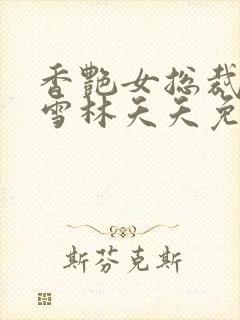 香艳女总裁
雪林天天免
斯芬克斯